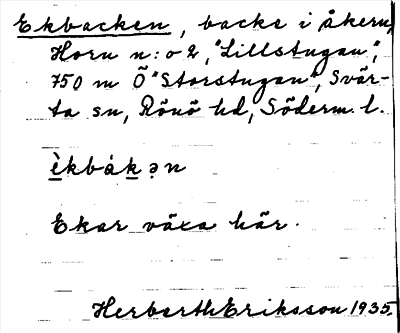 Ekbacken, backe i åkern,
Horn n:o 2, "Lillstugan",
750 m Ö "Storstugan", Svär-
ta sn, Rönö hd, Söderm. l.
èkbákən
Ekar växa här.
Herbert Eriksson 1935.